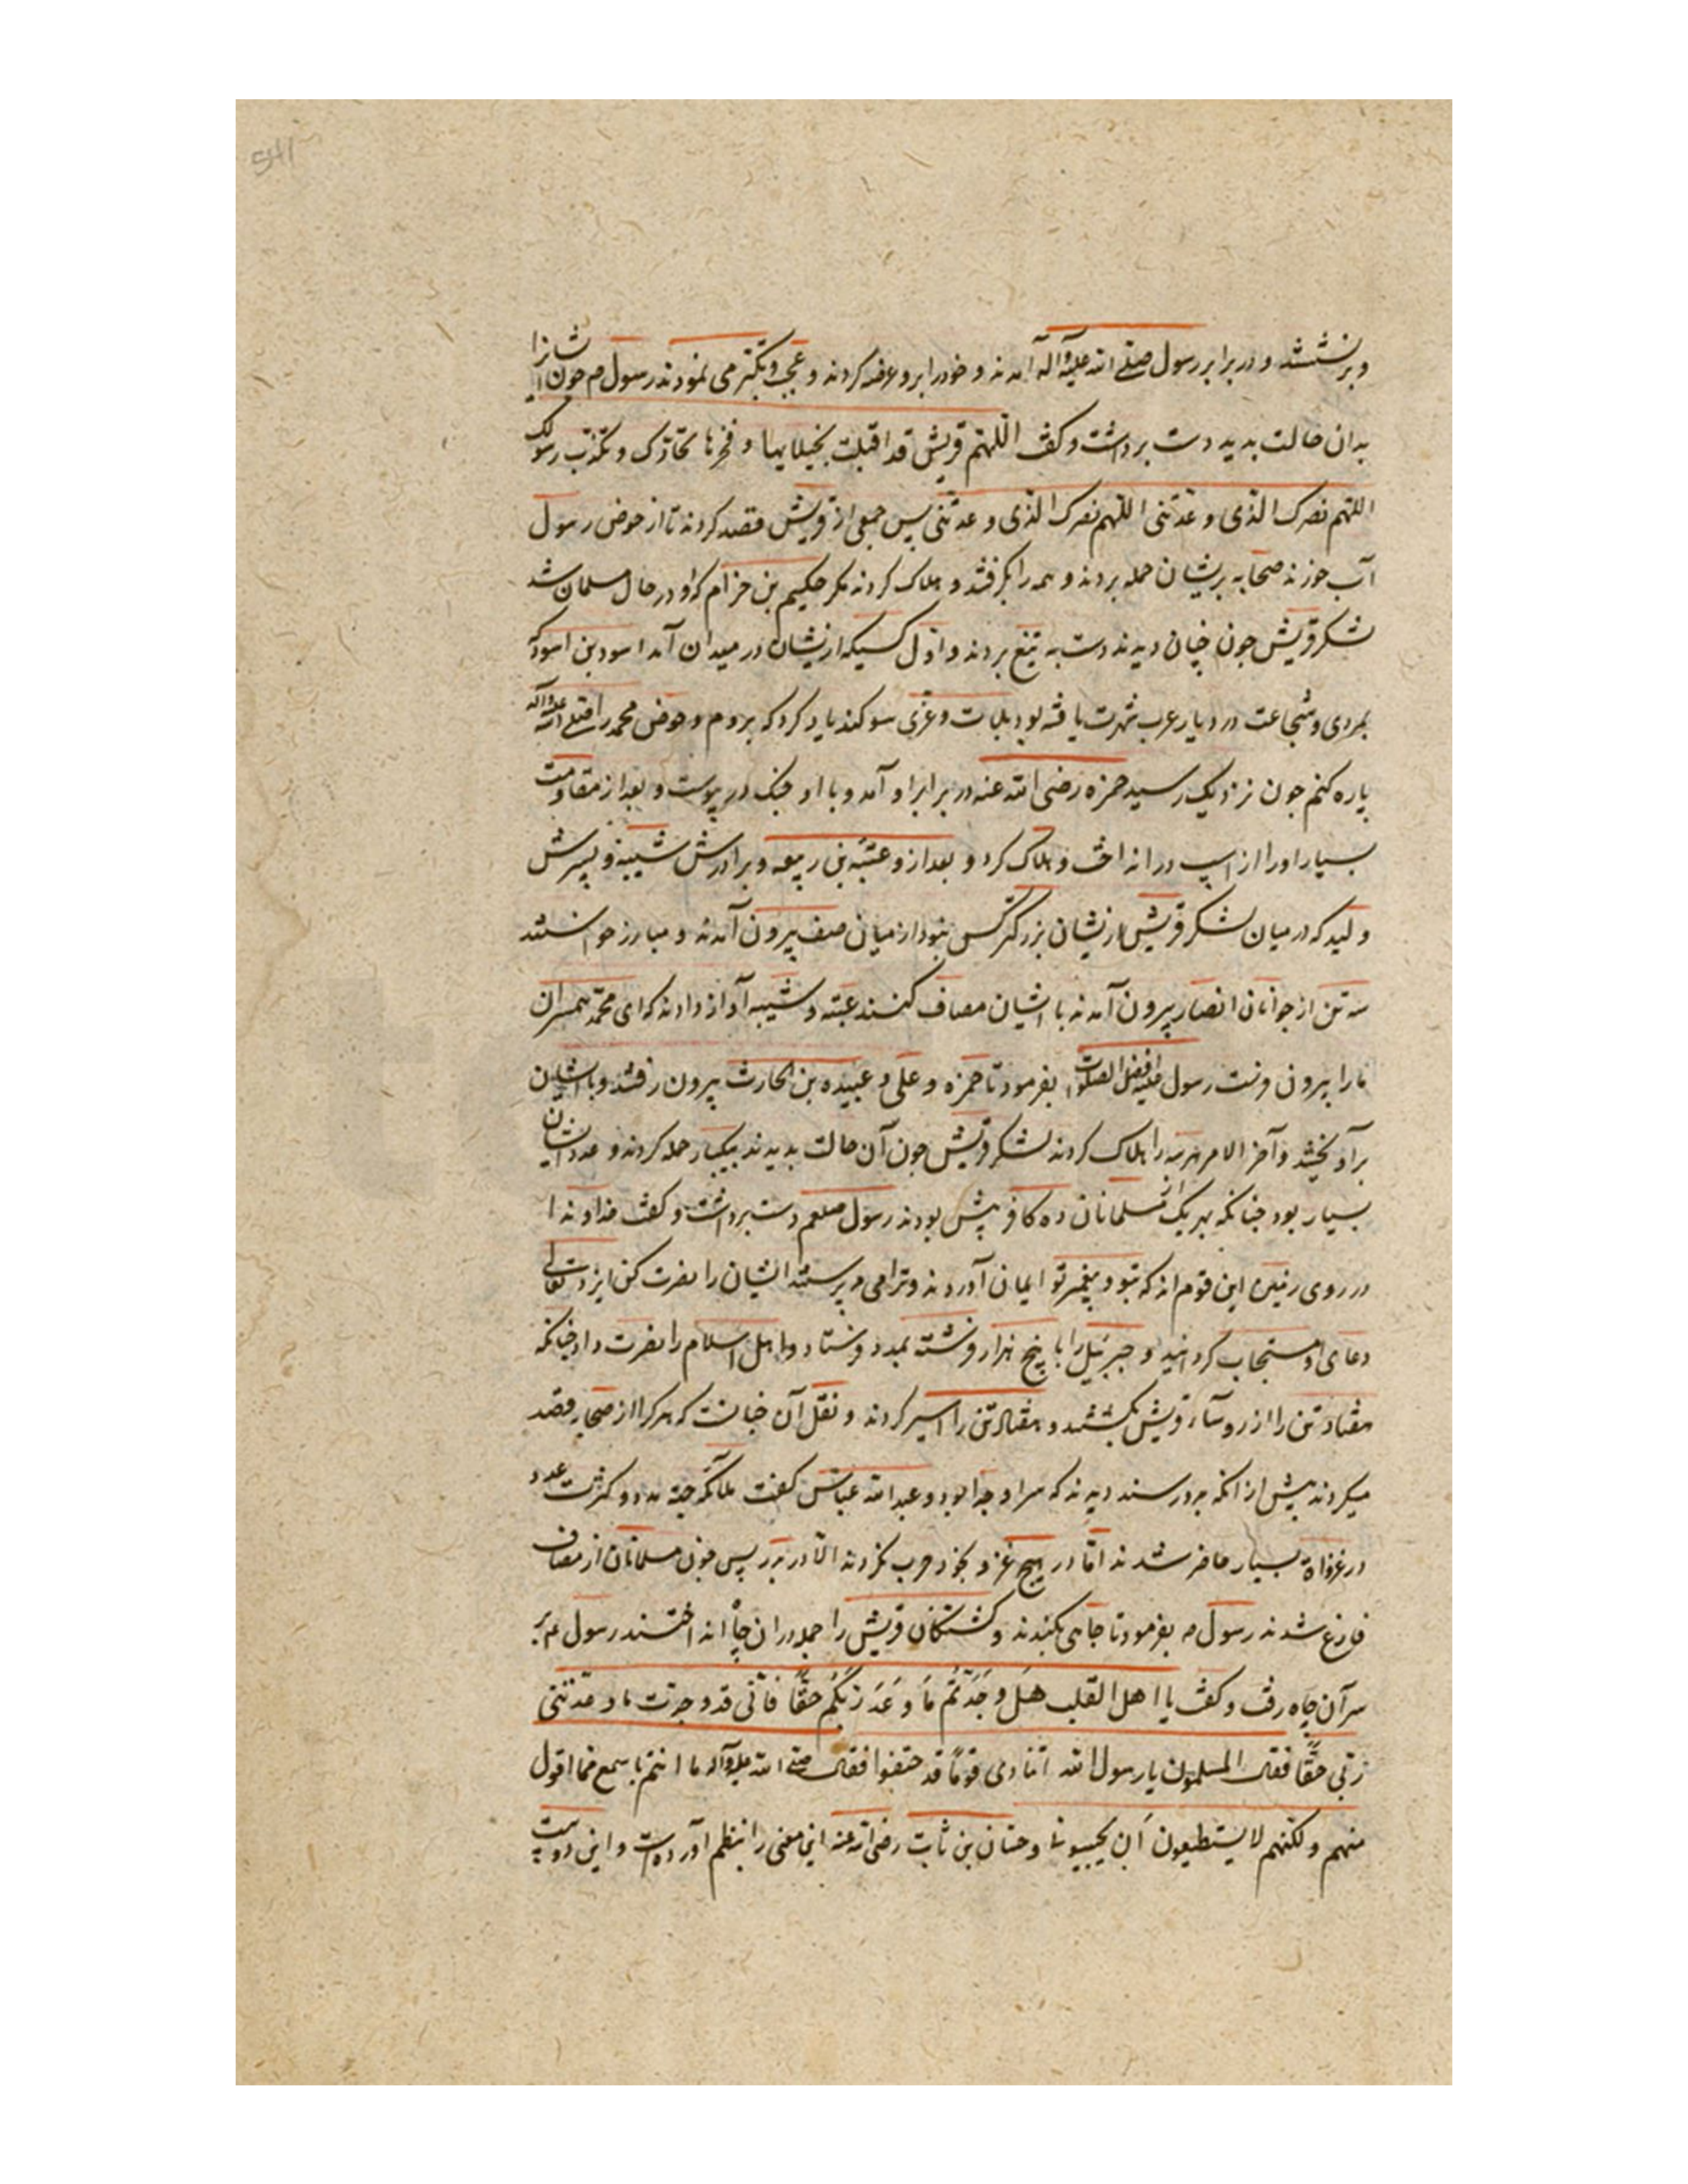 و برنشستند و در برابر رسول صلی الله علیه و آله آمدند و خود را برو عرضه کردند و عجب و تکبر می نمودند رسول م چون ایشانرا
بدان حالت بدید دست برداشت و کفت اللهم قریش قد اقبلت بخیلایها و فخرها تحادک و تکذب رسولک
اللهم نصرک الذی وعدتنی اللهم نصرک الذی وعدتنی پس جمعی از قریش قصد کردند تا از حوض رسول
آب خورند صحابه بریشان حمله بردند و همه را بکرفتند و هلاک کردند مکر حکیم بن حزام که او در حال مسلمان شد
لشکر قریش چون چنان دیدند دست به تیغ بردند و اول کسیکه ازیشان در میدان آمد اسود بن اسود که
بمردی و شجاعت در دیار عرب شهرت یافته بود بلات و عزی سوکند یاد کرد که بروم و حوض محمد را صلی الله علیه و آله
پاره کنم چون نزدیک رسید حمزه رضی الله عنه در برابر او آمد و با او جنک در پیوست و بعد از مقاومت
بسیار او را از اسپ در انداخت و هلاک کرد و بعد ازو عتبه بن ربیعه و برادرش شیبه و پسرش
ولید که در میان لشکر قریش ازیشان بزرکتر کس نبود از میان صف بیرون آمدند و مبارز خواستند
سه تن از جوانان انصار بیرون آمدند با ایشان مصاف کنند عتبه و شیبه آواز دادند که ای محمد همسران
ما را بیرون فرست رسول علیه افضل الصلوات بفرمود تا حمزه و علی و عبیده بن الحارث بیرون رفتند و با ایشان
برآویختند و آخر الامر هر سه را هلاک کردند لشکر قریش چون آن حالت بدیدند بیکبار حمله کردند و عدد ایشان
بسیار بود چنانکه بهر یک از مسلمانان ده کافر بیش بودند رسول صلعم دست برداشت و کفت خداوندا
در روی زمین این قوم اند که بتو و پیغمبر تو ایمان آوردند و ترا می پرستند ایشان را نصرت کن ایزد تعالی
دعای او مستجاب کردانید و جبرئیل را با پنج هزار فرشته بمدد فرستاد و اهل اسلام را نصرت داد چنانکه
هفتاد تن را از روساء قریش بکشتند و هفتاد تن را اسیر کردند و نقل آن چنانست که هر کرا از صحابه قصد
میکردند پیش از انکه بدو رسند دیدند که سر او جدا بود و عبدالله عباس کفت ملائکه جهة مدد و کثرت عدد
در غزواة بسیار حاضر شدند اما در هیچ غزو بخود حرب نکردند الا در بدر پس چون مسلمانان از مصاف
فارغ شدند رسول م بفرمود تا چاهی بکندند و کشتکان قریش را جمله دران چاه انداختند رسول م بر
سر آن چاه رفت و کفت یا اهل القلیب هل وجدتم ما وعد ربکم حقا فانی قد وجدت ما وعدنی
ربی حقا فقال المسلمون یا رسول الله اتنادی قوما قد جیفوا فقال صلی الله علیه و آله ما انتم باسمع مما اقول
منهم و لکنهم لا یستطیعون أن یجیبونا و حسان بن ثابت رضی الله عنه این معنی را بنظم آورده است و این دو بیت